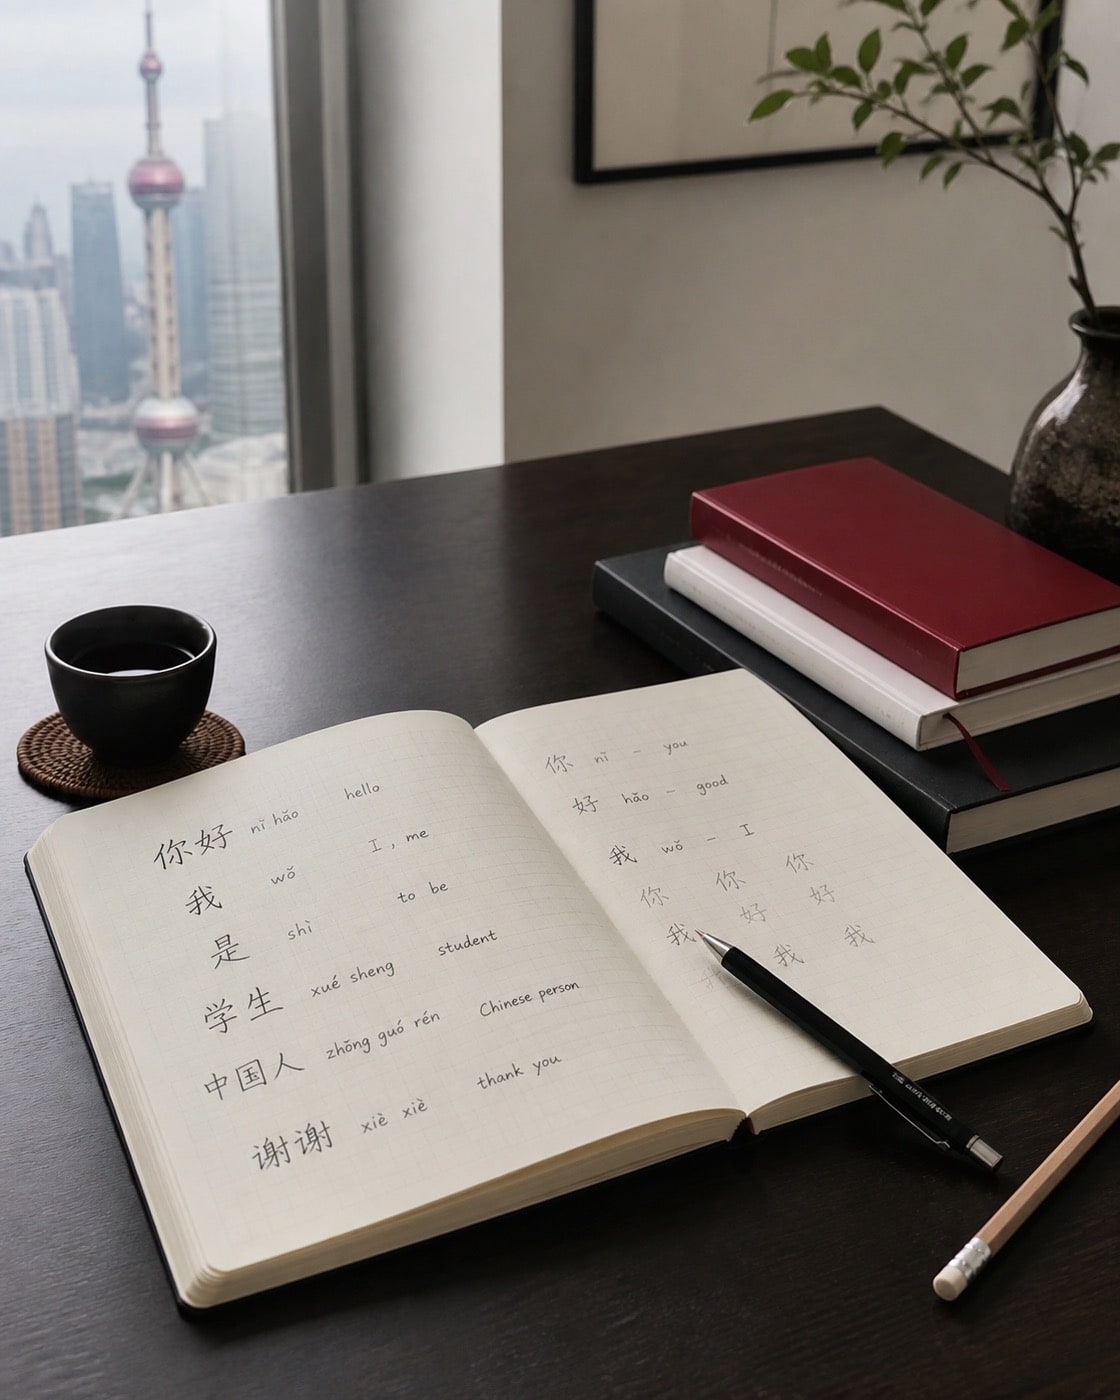 你好 nǐ hǎo hello
我 wǒ I, me
是 shì to be
学生 xué sheng student
中国人 zhōng guó rén Chinese person
谢谢 xiè xiè thank you
你 nǐ – you
好 hǎo – good
我 wǒ – I
你 你 你
好 好
我 我 我